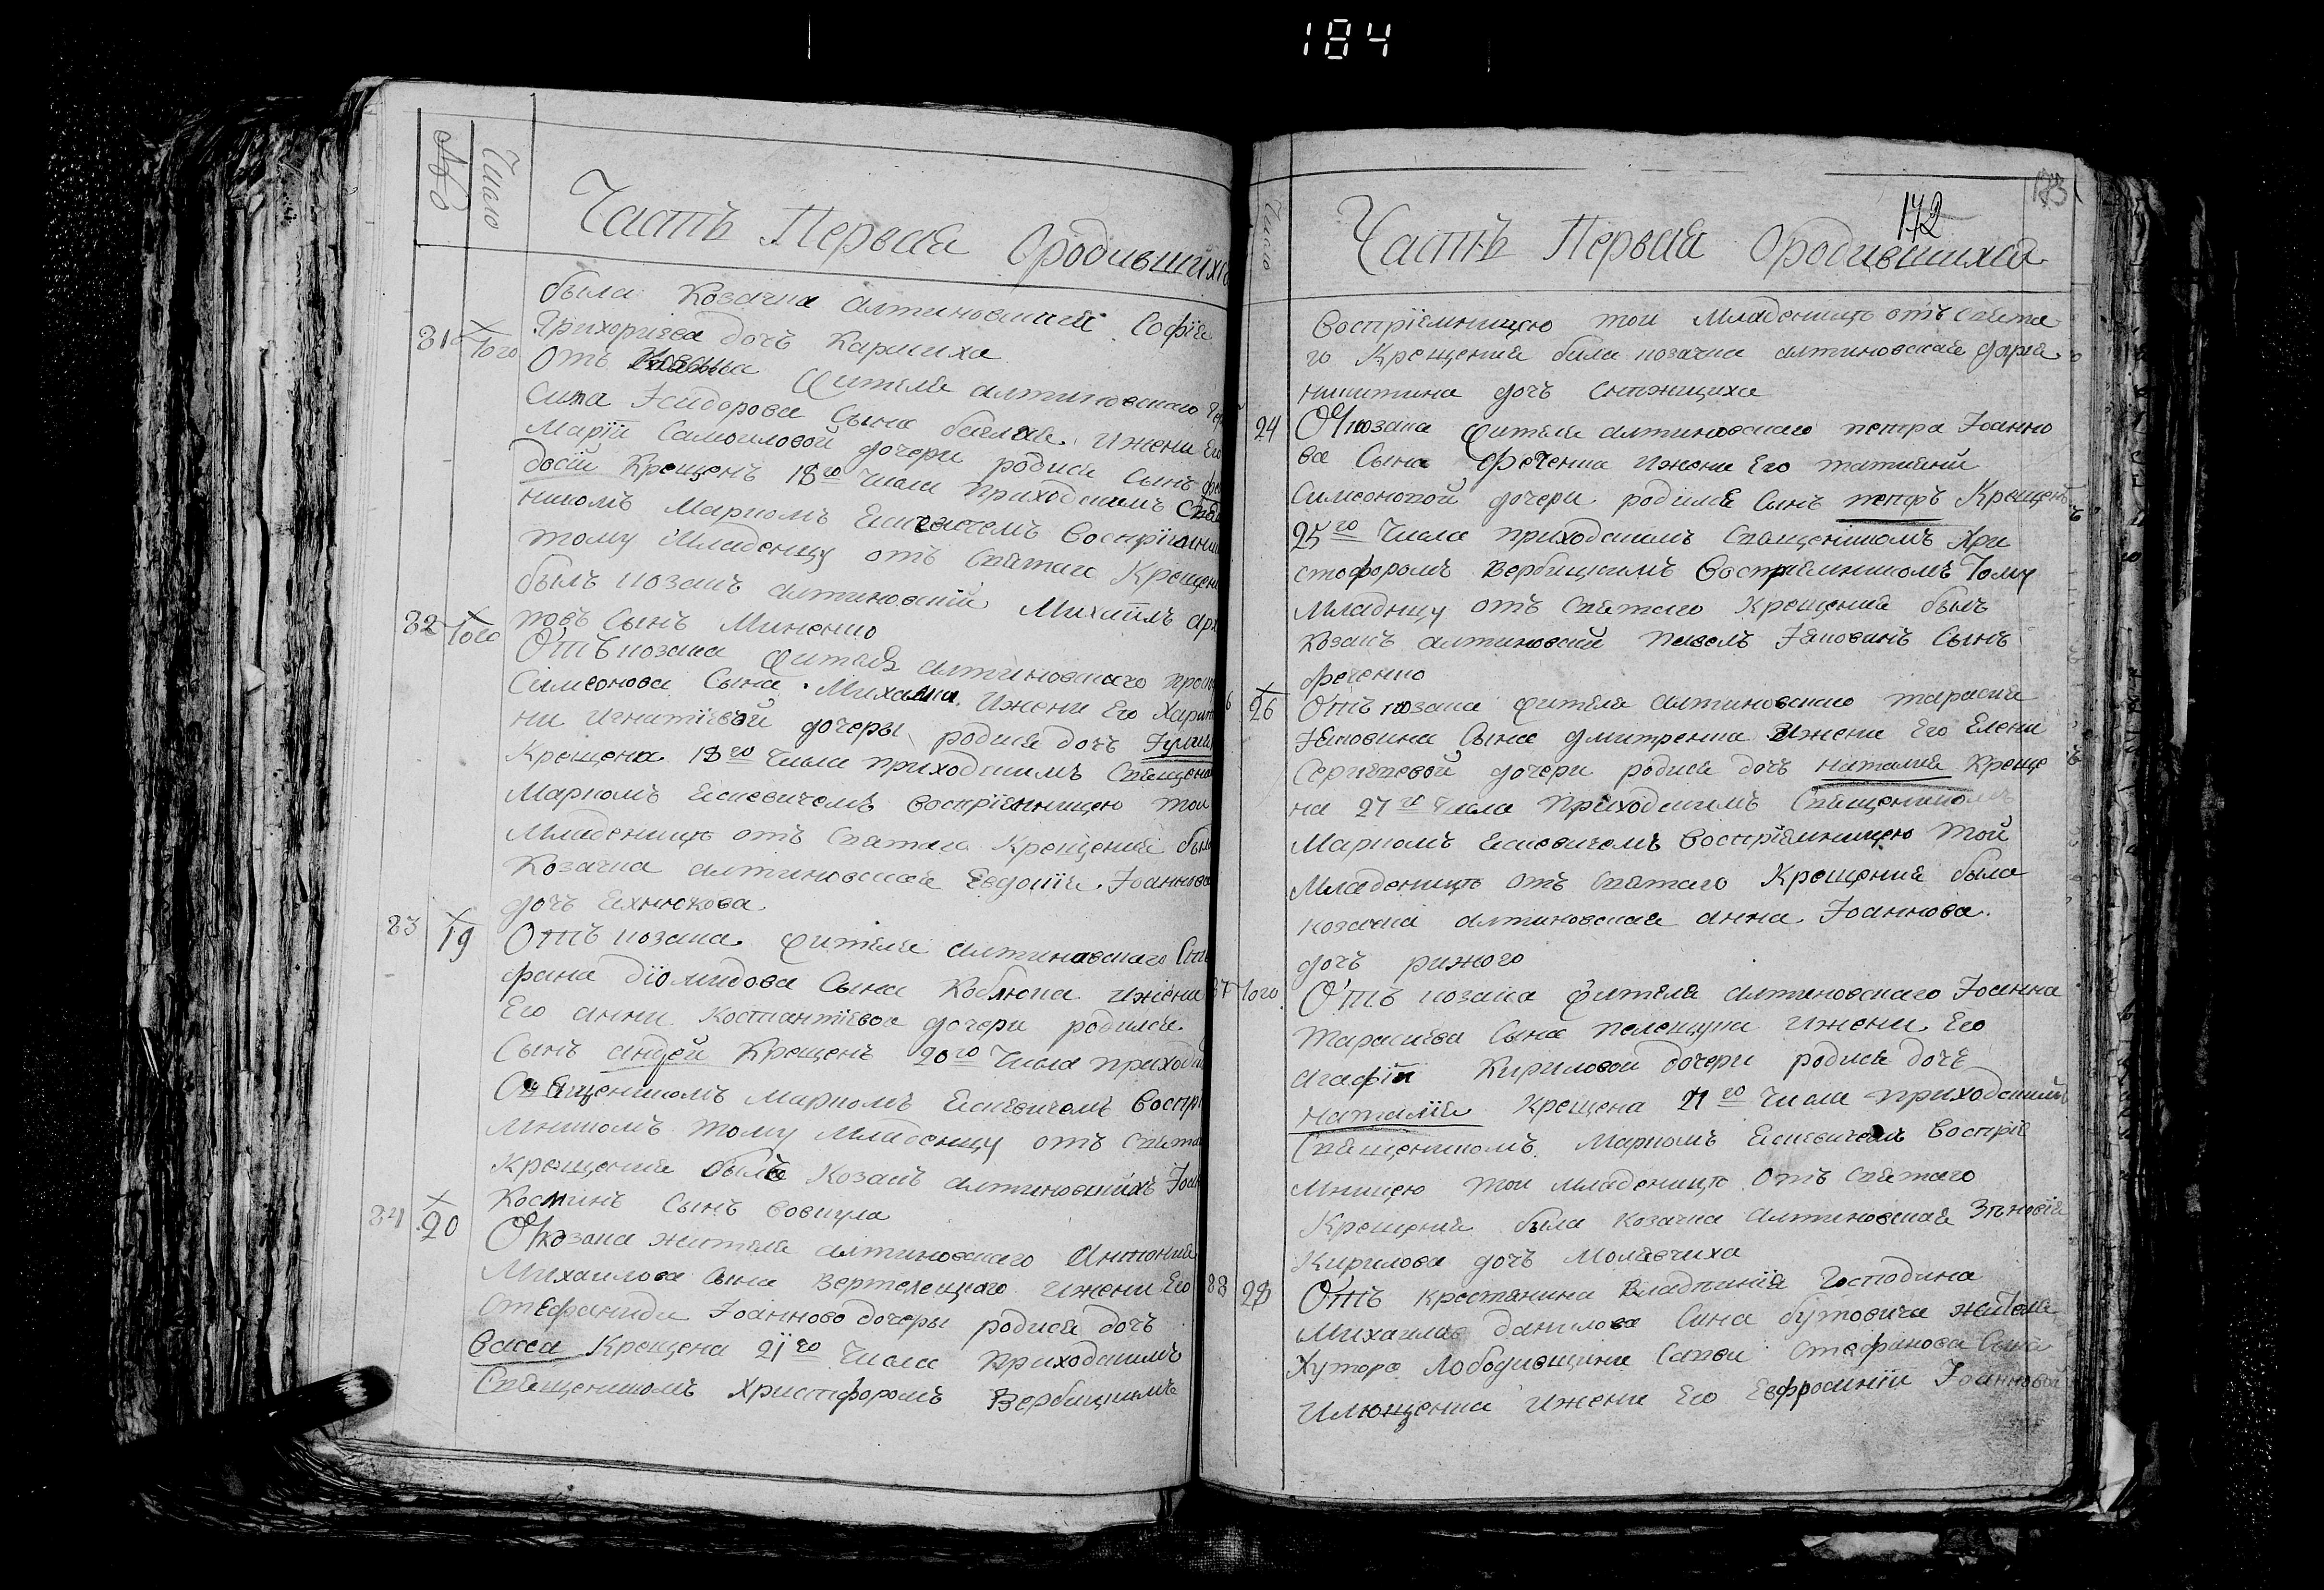 184
№
Число
Часть Первая Ородившихс
была Козачка алтиновский Софїя
Григориева дочь Карпиха
81 Того От жителя алтиновского
сипа Isидорова Сына Ижени Его
Марїи Самоиловой дочери родися Сынъ фео
досїи Крещенъ 18го Числа приходскимъ Свящ
никомъ Маркомъ Ескевичемъ Восприемни
тому Младенцу отъ Святаго Крещени
былъ козакъ алтиновскїи Михаилъ
повъ Сынъ Миненко
82 Того Отъ козака жителя алтиновского
Симеонова Сына Михална Ижени Его Харит
ни игнатїевой дочеры родися дочъ Iулиан
Крещена 18го Числа приходскимъ Священ
Маркомъ Ескевичемъ восприемницею тои
Младеницѣ отъ Святаго Крещения была
Козачка алтиновская Евдокїя Iоаннова
дочъ Ехнюкова
83 19 Отъ козака жителя алтиновского Сте
фана дїомидова Сына Коблюка ижени
Его анни Костантїевои дочери родился
Сынъ андрей Крещенъ 20го Числа приходск
Священикомъ Маркомъ Ескевичемъ Воспрї
мникомъ тому Младенцу отъ Святаг
крещения былъ Козакъ алтиновскихъ Iоан
Косминъ Сынъ Вовкула
84 20 От козака жителя алтиновского Антония
Михаилова Сына Вертелецкого ижени Его
Стефаниди Iоанново дочеры родися дочъ
Васса Крещена 21го Числа приходскимъ
Священикомъ Христофоромъ Вербицкимъ
Число
172
173
Часть Первая Ородившихся
Воспрїемницею тои Младеницѣ отъ Свята
го Крещения была козачка алтиновская дария
никитина дочъ
24 От козака жителя алтиновского петра Iоанно
ва Сына Фреченка Ижени Его татияни
Симеоновой дочери родился Сынъ петръ Крещенъ
25го Числа приходскимъ Священикомъ Хри
стофоромъ Вербицкимъ Воспрїемникомъ Тому
Младнцу отъ Святаго Крещения былъ
козакъ алтиновский павелъ Iяковинъ Сынъ
фреченко
6 26 Отъ козака жителя алтиновского тарасия
Iяковина Сына дмитренка Ижени Его Елени
Сергиевой дочери родися дочъ наталия Креще
на 27го Числа приходскимъ Священикомъ
Маркомъ Ескевичемъ Воспрїемницею Той
Младеницѣ отъ Святаго Крещения была
козачка алтиновская анна Iоаннова
дочъ рижного
87 Того Отъ козака жителя алтиновского Iоанна
Тарасиева Сына пелещука ижени Его
агафїи Кириловой дочери родися дочъ
Наталїя Крещена 27го Числа приходскимъ
Священикомъ Маркомъ Ескевичемъ Воспрїе
мницею тои младеницѣ отъ Святаго
Крещения была козачка алтиновская Зѣновїя
Кирилова дочъ Молявчиха
88 28 Отъ крестянина Владѣнїя Господина
Михаила данилова Сина бутовича жителя
Хутора Лободивщини Савви Стефанова Сына
Илющенка Ижени Его Евфросинїи Iоанновой